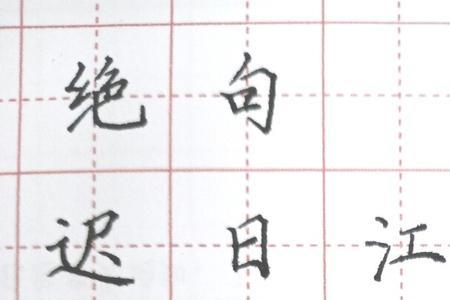 绝句
迟日江